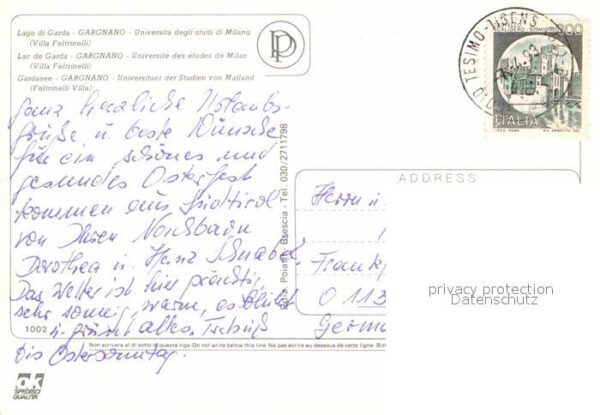 Lago di Garda - GARGNANO - Università degli studi di Milano
(Villa Feltrinelli)
Lac de Garda - GARGNANO - Universite des études de Milan
(Villa Feltrinelli)
Gardasee - GARGNANO - Universitaet der Studien von Mailand
(Feltrinelli Villa)
ganz herzliche Urlaubs-
grüße u. beste Wünsche
für ein schönes und
gesundes Osterfest
kommen aus Südtirol
von Ihren Nachbarn
Dorothea u. Heinz Schnabel,
Das Wetter ist hier prächtig,
sehr sonnig, warm, es blüht
u. grünt alles. Tschüß
bis Ostersonntag.
1002
Poiatti Brescia - Tel. 030/2711798
TESIMO - TISENS
300
ITALIA
ADDRESS
Herrn u.
Frankf
O 113
Germ
privacy protection
Datenschutz
Non scrivere al di sotto di questa riga - Do not write below this line - Ne pas écrire au dessous de cette ligne - Bit
ak
SPEDISCI
QUALITÀ